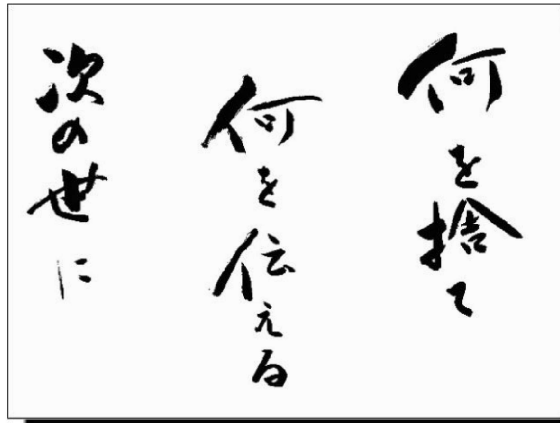 何を捨て
何を伝える
次の世に